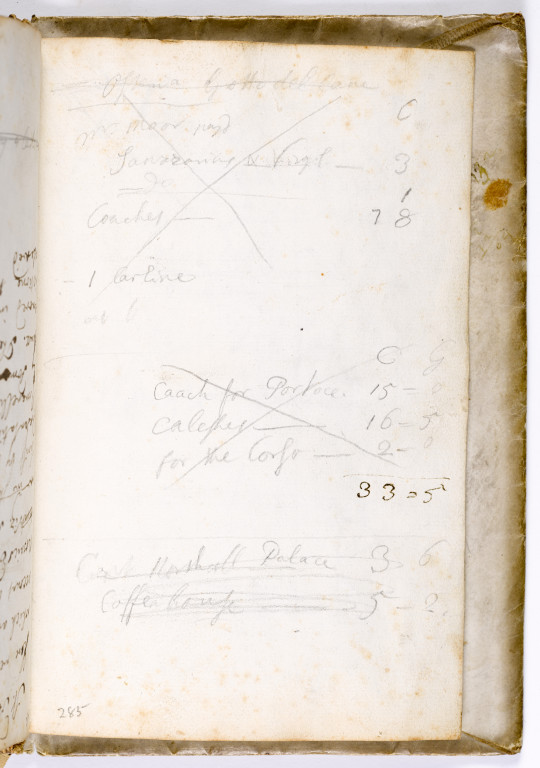 Grotto del Cane
C
Mr Moor. payd
Sannazarius & Virgil — 3
Do 1
Coaches — 7 8
- 1 Carline
C G
Coach for Portace. 15 = 0
Caleshes — 16 = 5
for the Corso — 2 - 0
33 = 5
Marshall Palace 3 6
Coffee house 5 - 2.
285